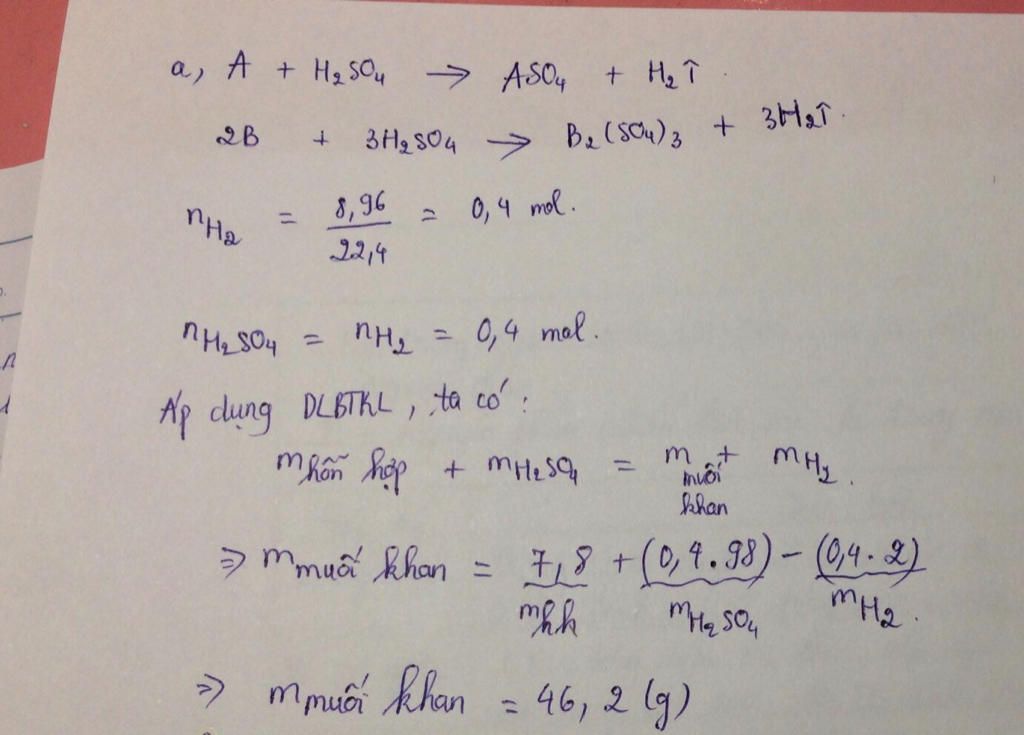 a, A + H₂SO₄ → ASO₄ + H₂↑.
2B + 3H₂SO₄ → B₂(SO₄)₃ + 3H₂↑.
nH₂ = 8,96/22,4 = 0,4 mol.
nH₂SO₄ = nH₂ = 0,4 mol.
Áp dụng DLBTKL, ta có:
m hỗn hợp + mH₂SO₄ = m muối khan + mH₂.
⇒ m muối khan = 7,8 + (0,4.98) - (0,4.2)
mhh mH₂SO₄ mH₂.
⇒ m muối khan = 46,2 (g)